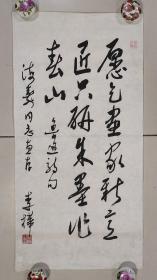 愿乞画家新意
匠只研朱墨作
春山 鲁迅诗句
同志
李桦